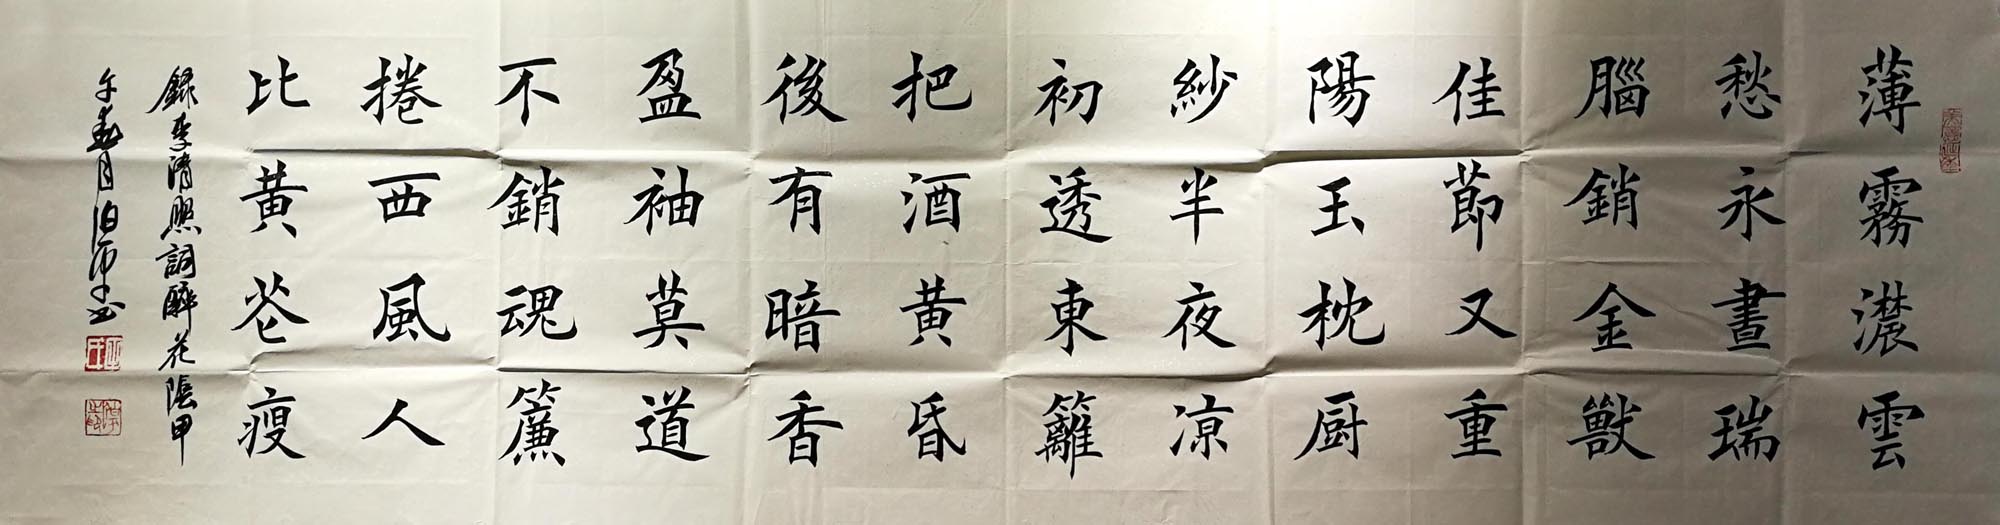 薄霧濃雲
愁永晝瑞
腦銷金獸
佳節又重
陽玉枕
厨紗半夜凉
初透東籬
把酒黄昏
後有暗香
盈袖莫道
不銷魂簾
捲西風人
比黄花瘦
錄李清照詞醉花陰甲
午春月